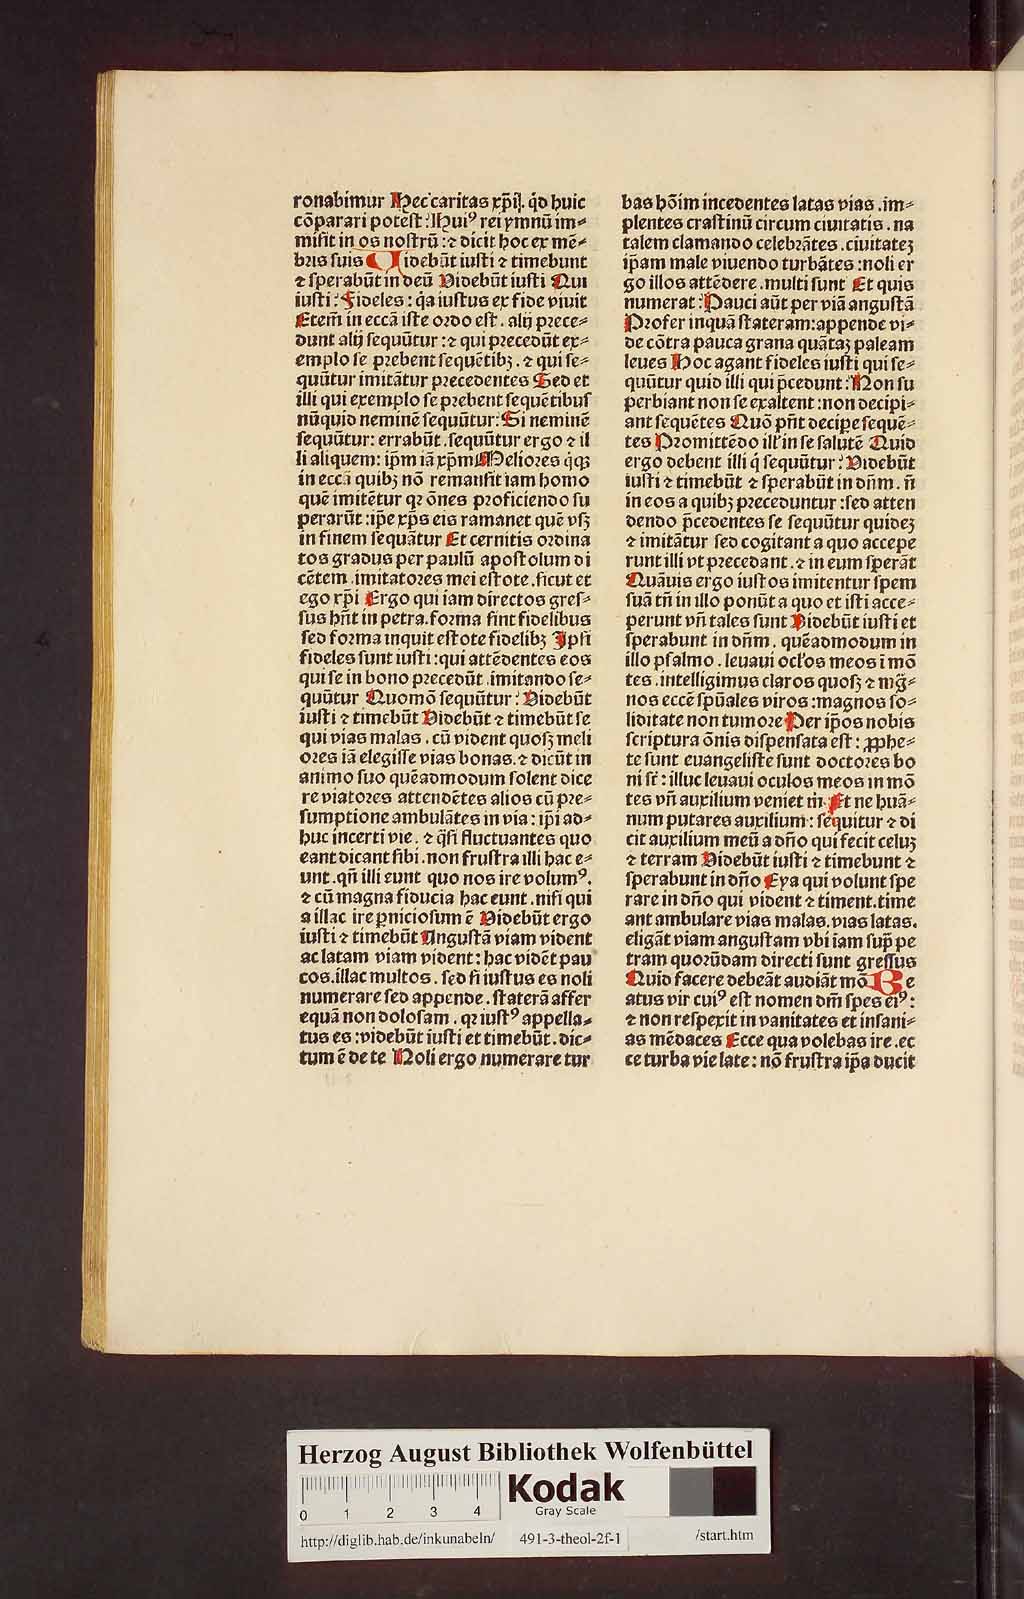 ronabimur Hec caritas xp̄i. q̇d huic
cōparari potest: Huiꝰ rei ymnū im⸗
misit in os nostrū : ⁊ dicit hoc ex mē⸗
bris suis Uidebūt iusti ⁊ timebunt
⁊ sperabūt in deū Videbūt iusti Qui
iusti : Fideles : q̄a iustus ex fide viuit
Etem̄ in ecc̄a iste ordo est . alij prece⸗
dunt alij sequūtur : ⁊ qui precedūt ex⸗
emplo se prebent sequētibꝫ . ⁊ qui se⸗
quūtur imitātur precedentes Sed et
illi qui exemplo se prebent sequētibus
nūquid neminē sequūtur: Si neminē
sequūtur: errabūt . sequūtur ergo ⁊ il
li aliquem: ip̄m iā xp̄m Meliores q̇qꝫ
in ecc̄a quibꝫ nō remansit iam homo
quē imitētur qꝛ ōnes proficiendo su
perarūt : ip̄e xp̄s eis ramanet quē vsqꝫ
in finem sequātur Et cernitis ordina
tos gradus per paulū apostolum di
cētem . imitatores mei estote . sicut et
ego xp̄i Ergo qui iam directos gres⸗
sus hn̄t in petra . forma sint fidelibus
sed forma inquit estote fidelibꝫ Ipsi
fideles sunt iusti : qui attēdentes eos
qui se in bono precedūt . imitando se⸗
quūtur Quomō sequūtur : Videbūt
iusti ⁊ timebūt Videbūt ⁊ timebūt se
qui vias malas . cū vident quosꝫ meli
ores iā elegisse vias bonas . ⁊ dicūt in
animo suo quēadmodum solent dice
re viatores attendētes alios cū pre⸗
sumptione ambulātes in via : ip̄i ad⸗
huc incerti vie . ⁊ q̄si fluctuantes quo
eant dicant sibi . non frustra illi hac e⸗
unt . qn̄ illi eunt quo nos ire volumꝰ .
⁊ cū magna fiducia hac eunt . nisi qui
a illac ire ꝑniciosum ē Videbūt ergo
iusti ⁊ timebūt Angustā viam vident
ac latam viam vident : hac vidēt pau
cos . illac multos . sed si iustus es noli
numerare sed appende . staterā affer
equā non dolosam . qꝛ iustꝰ appella⸗
tus es : videbūt iusti et timebūt . dic⸗
tum ē de te Noli ergo numerare tur
bas hōim incedentes latas vias . im⸗
plentes crastinū circum ciuitatis . na
talem clamando celebrātes . ciuitateꝫ
ip̄am male viuendo turbātes : noli er
go illos attēdere . multi sunt Et quis
numerat : Pauci aūt per viā angustā
Profer inquā stateram: appende vi⸗
de cōtra pauca grana quātaꝫ paleam
leues Hoc agant fideles iusti qui se⸗
quūtur quid illi qui p̄cedunt : Non su
perbiant non se exaltent : non decipi⸗
ant sequētes Quō pn̄t decipe sequē⸗
tes Promittēdo ill' in se salutē Quid
ergo debent illi q̇ sequūtur : Videbūt
iusti ⁊ timebūt ⁊ sperabūt in dn̄m . n̄
in eos a quibꝫ preceduntur : sed atten
dendo p̄cedentes se sequūtur quideꝫ
⁊ imitātur sed cogitant a quo accepe
runt illi vt precedant . ⁊ in eum sperāt
Quāuis ergo iustos imitentur spem
suā tn̄ in illo ponūt a quo et isti acce⸗
perunt vn̄ tales sunt Videbūt iusti et
sperabunt in dn̄m . quēadmodum in
illo psalmo . leuaui ocl'os meos ī mō
tes . intelligimus claros quosꝫ ⁊ mḡ⸗
nos ecc̄e spūales viros : magnos so⸗
liditate non tumore Per ip̄os nobis
scriptura ōnis dispensata est : ꝓphe⸗
te sunt euangeliste sunt doctores bo
ni sr̄ : illuc leuaui oculos meos in mō
tes vn̄ auxilium veniet m̄ . Et ne hūa⸗
num putares auxilium : sequitur ⁊ di
cit auxilium meū a dn̄o qui fecit celuꝫ
⁊ terram Videbūt iusti ⁊ timebunt ⁊
sperabunt in dn̄o Eya qui volunt spe
rare in dn̄o qui vident ⁊ timent . time
ant ambulare vias malas . vias latas .
eligāt viam angustam vbi iam sup̄ pe
tram quorūdam directi sunt gressus
Quid facere debeāt audiāt mō Be
atus vir cuiꝰ est nomen dm̄ spes eiꝰ :
⁊ non respexit in vanitates et insani⸗
as mēdaces Ecce qua volebas ire . ec
ce turba vie late : nō frustra ip̄a ducit
Herzog August Bibliothek Wolfenbüttel
0 1 2 3 4
Kodak
Gray Scale
http://diglib.hab.de/inkunabeln/ 491-3-theol-2f-1 /start.htm